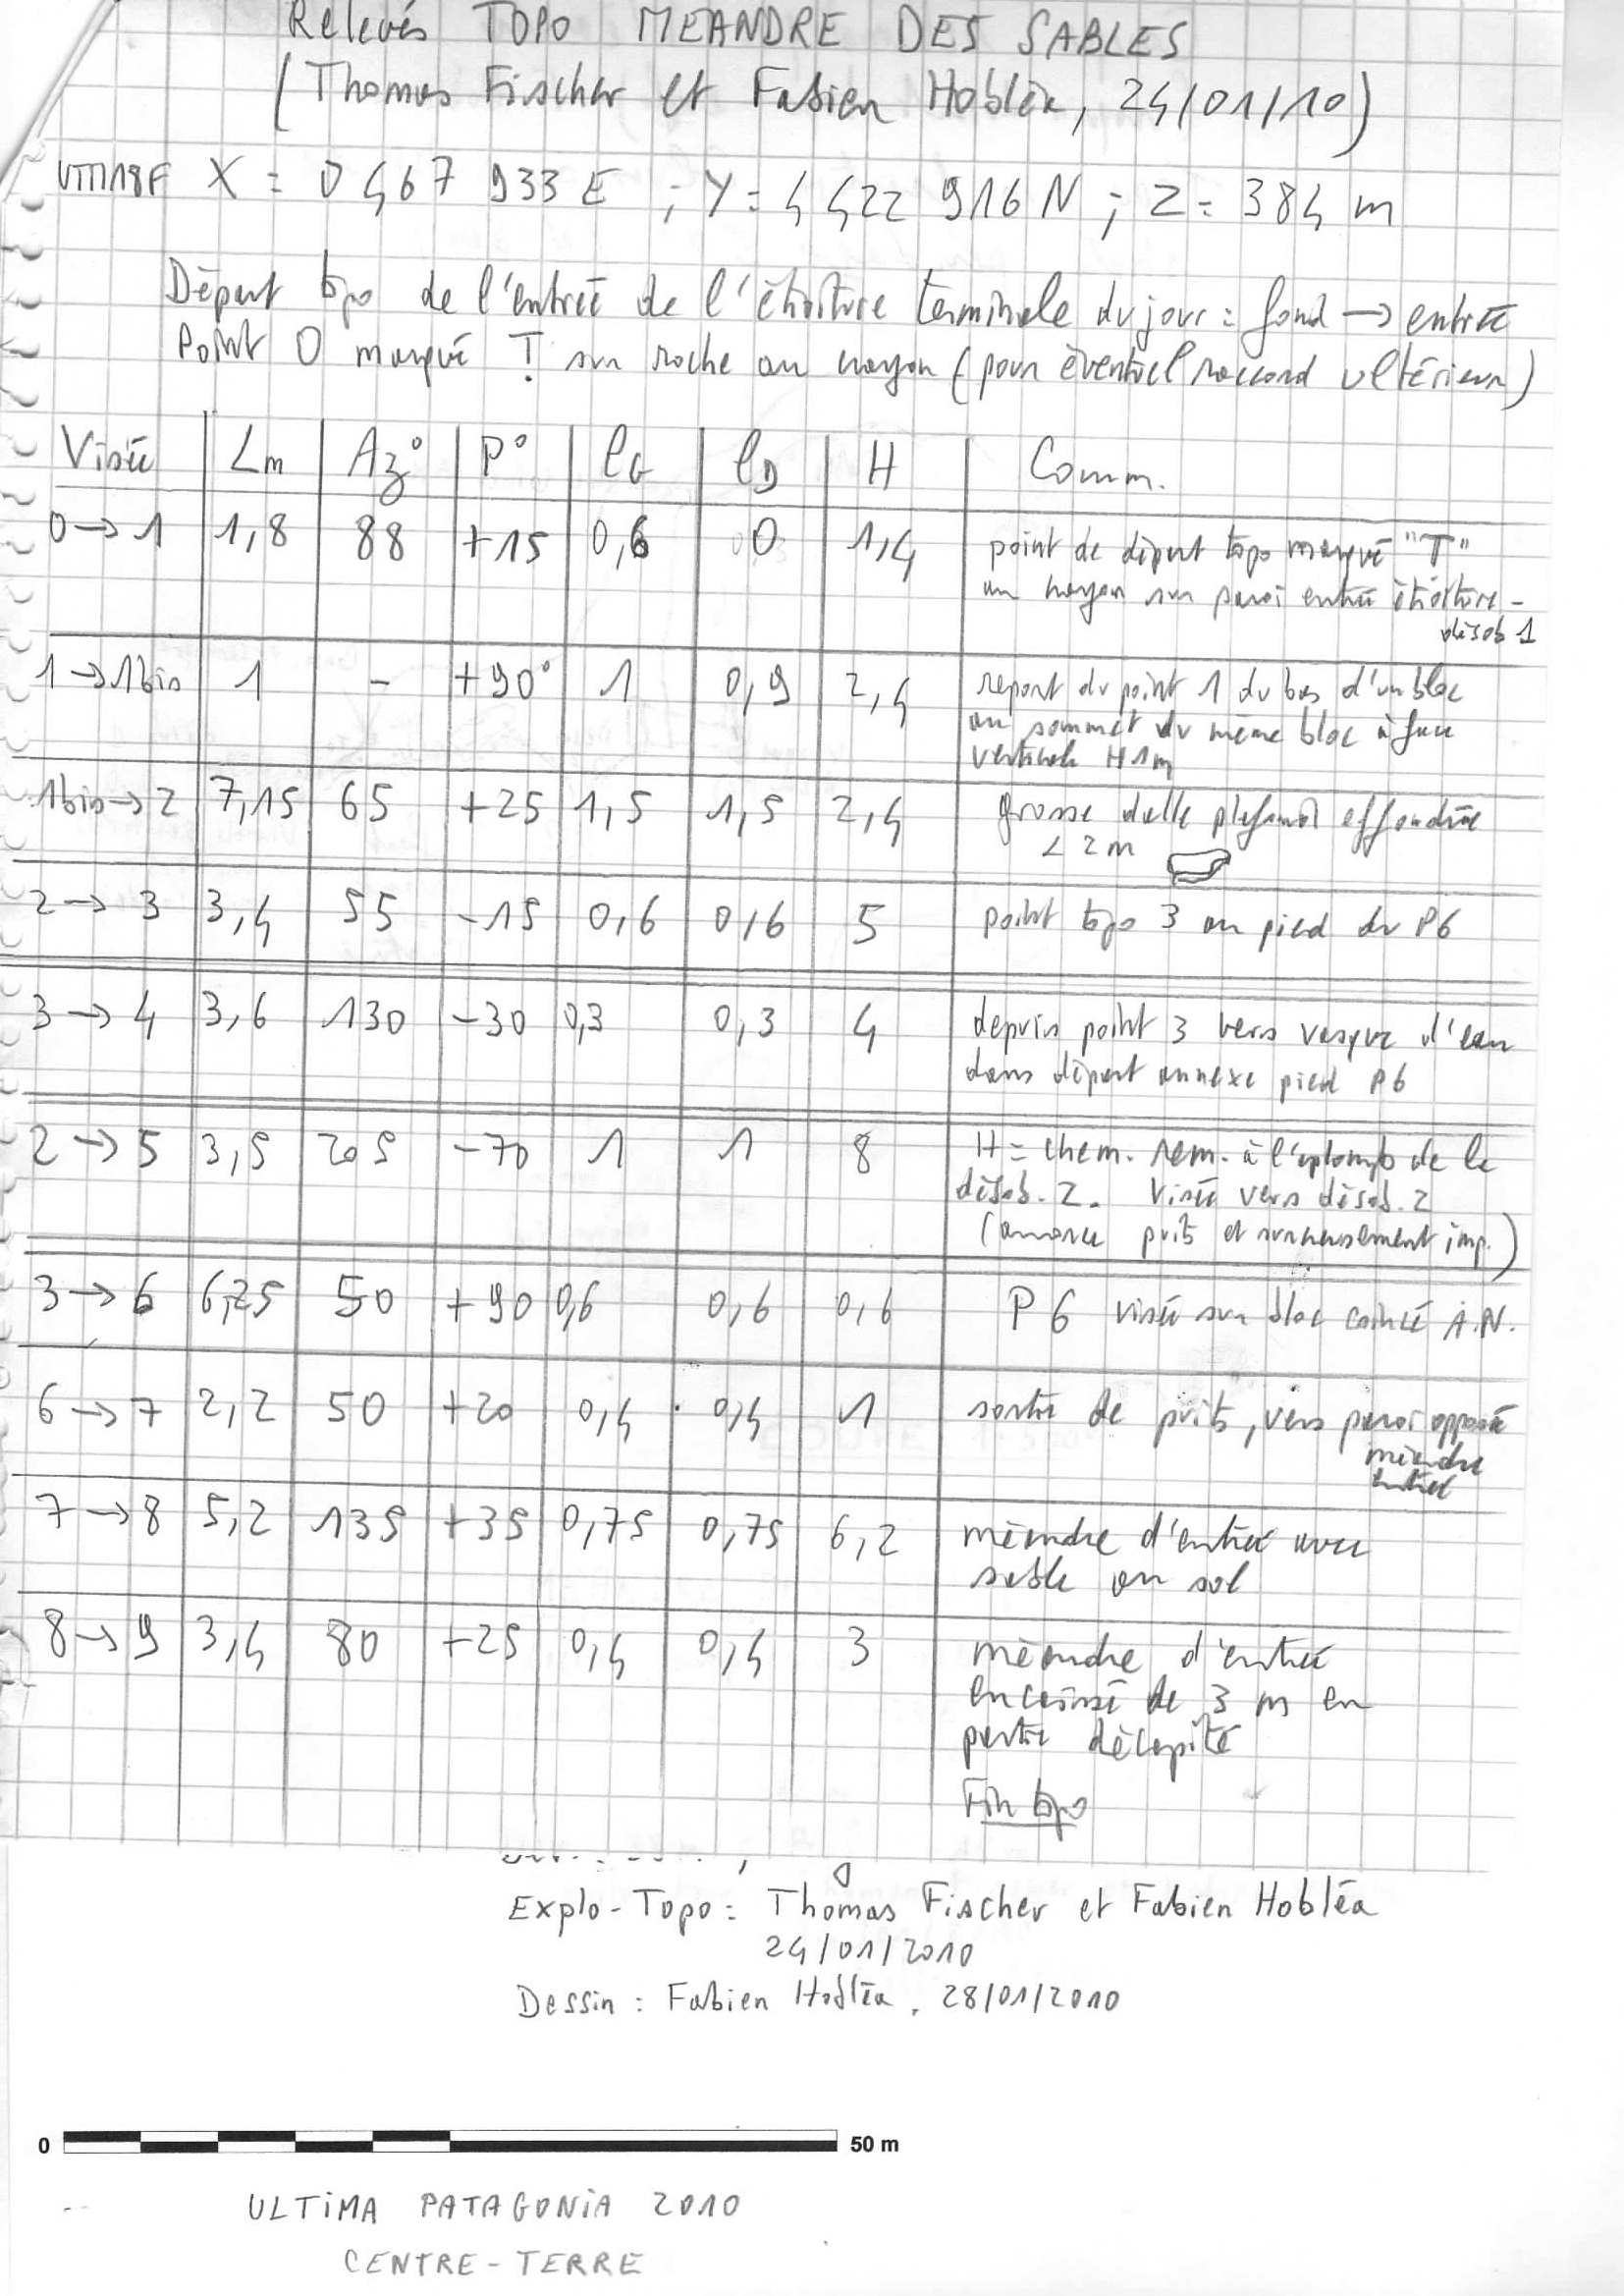 Relevés TOPO MEANDRE DES SABLES
(Thomas Fischer et Fabien Hobléa, 24/01/10)
UTM18F X = 0 467 933 E ; Y = 4 422 916 N ; Z = 384 m
Départ topo de l'entrée de l'étroiture terminale du jour : fond → entrée
Point 0 marqué T sur roche au crayon (pour éventuel raccord ultérieur)
Visée Lm Az° P° lG lD H Comm.
0 → 1 1,8 88 +15 0,6 0 1,4 point de départ topo marqué "T"
au crayon sur paroi entrée étroiture -
désob 1
1 → 1bis 1 - +90° 1 0,9 2,4 report du point 1 du bas d'un bloc
au sommet du même bloc à face
verticale H 1m
1bis → 2 7,15 65 +25 1,5 1,5 2,4 grosse dalle plafond effondrée
< 2 m
2 → 3 3,4 55 -15 0,6 0,6 5 point topo 3 au pied du P6
3 → 4 3,6 130 -30 0,3 0,3 4 depuis point 3 vers vasque d'eau
dans départ annexe pied P6
2 → 5 3,5 205 -70 1 1 8 H = chem. rem. à l'aplomb de la
désob. 2. Visée vers désob. 2
(amorce puits et surcreusement imp.)
3 → 6 6,25 50 +90 0,6 0,6 0,6 P6 visée sur bloc coincé A.N.
6 → 7 2,2 50 +20 0,4 0,4 1 sortie de puits, vers paroi opposée
méandre
entrée
7 → 8 5,2 135 +35 0,75 0,75 6,2 méandre d'entrée avec
sable au sol
8 → 9 3,4 80 +25 0,4 0,4 3 méandre d'entrée
encaissé de 3 m en
partie décapité
Fin topo
Explo-Topo : Thomas Fischer et Fabien Hobléa
24/01/2010
Dessin : Fabien Hobléa, 28/01/2010
0 50 m
ULTIMA PATAGONIA 2010
CENTRE-TERRE